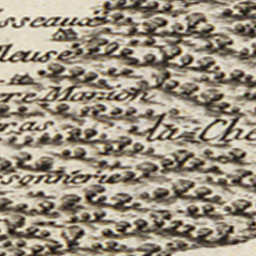 isseaux
lleuse
rre Marion
ras
la Cha
sonnerie